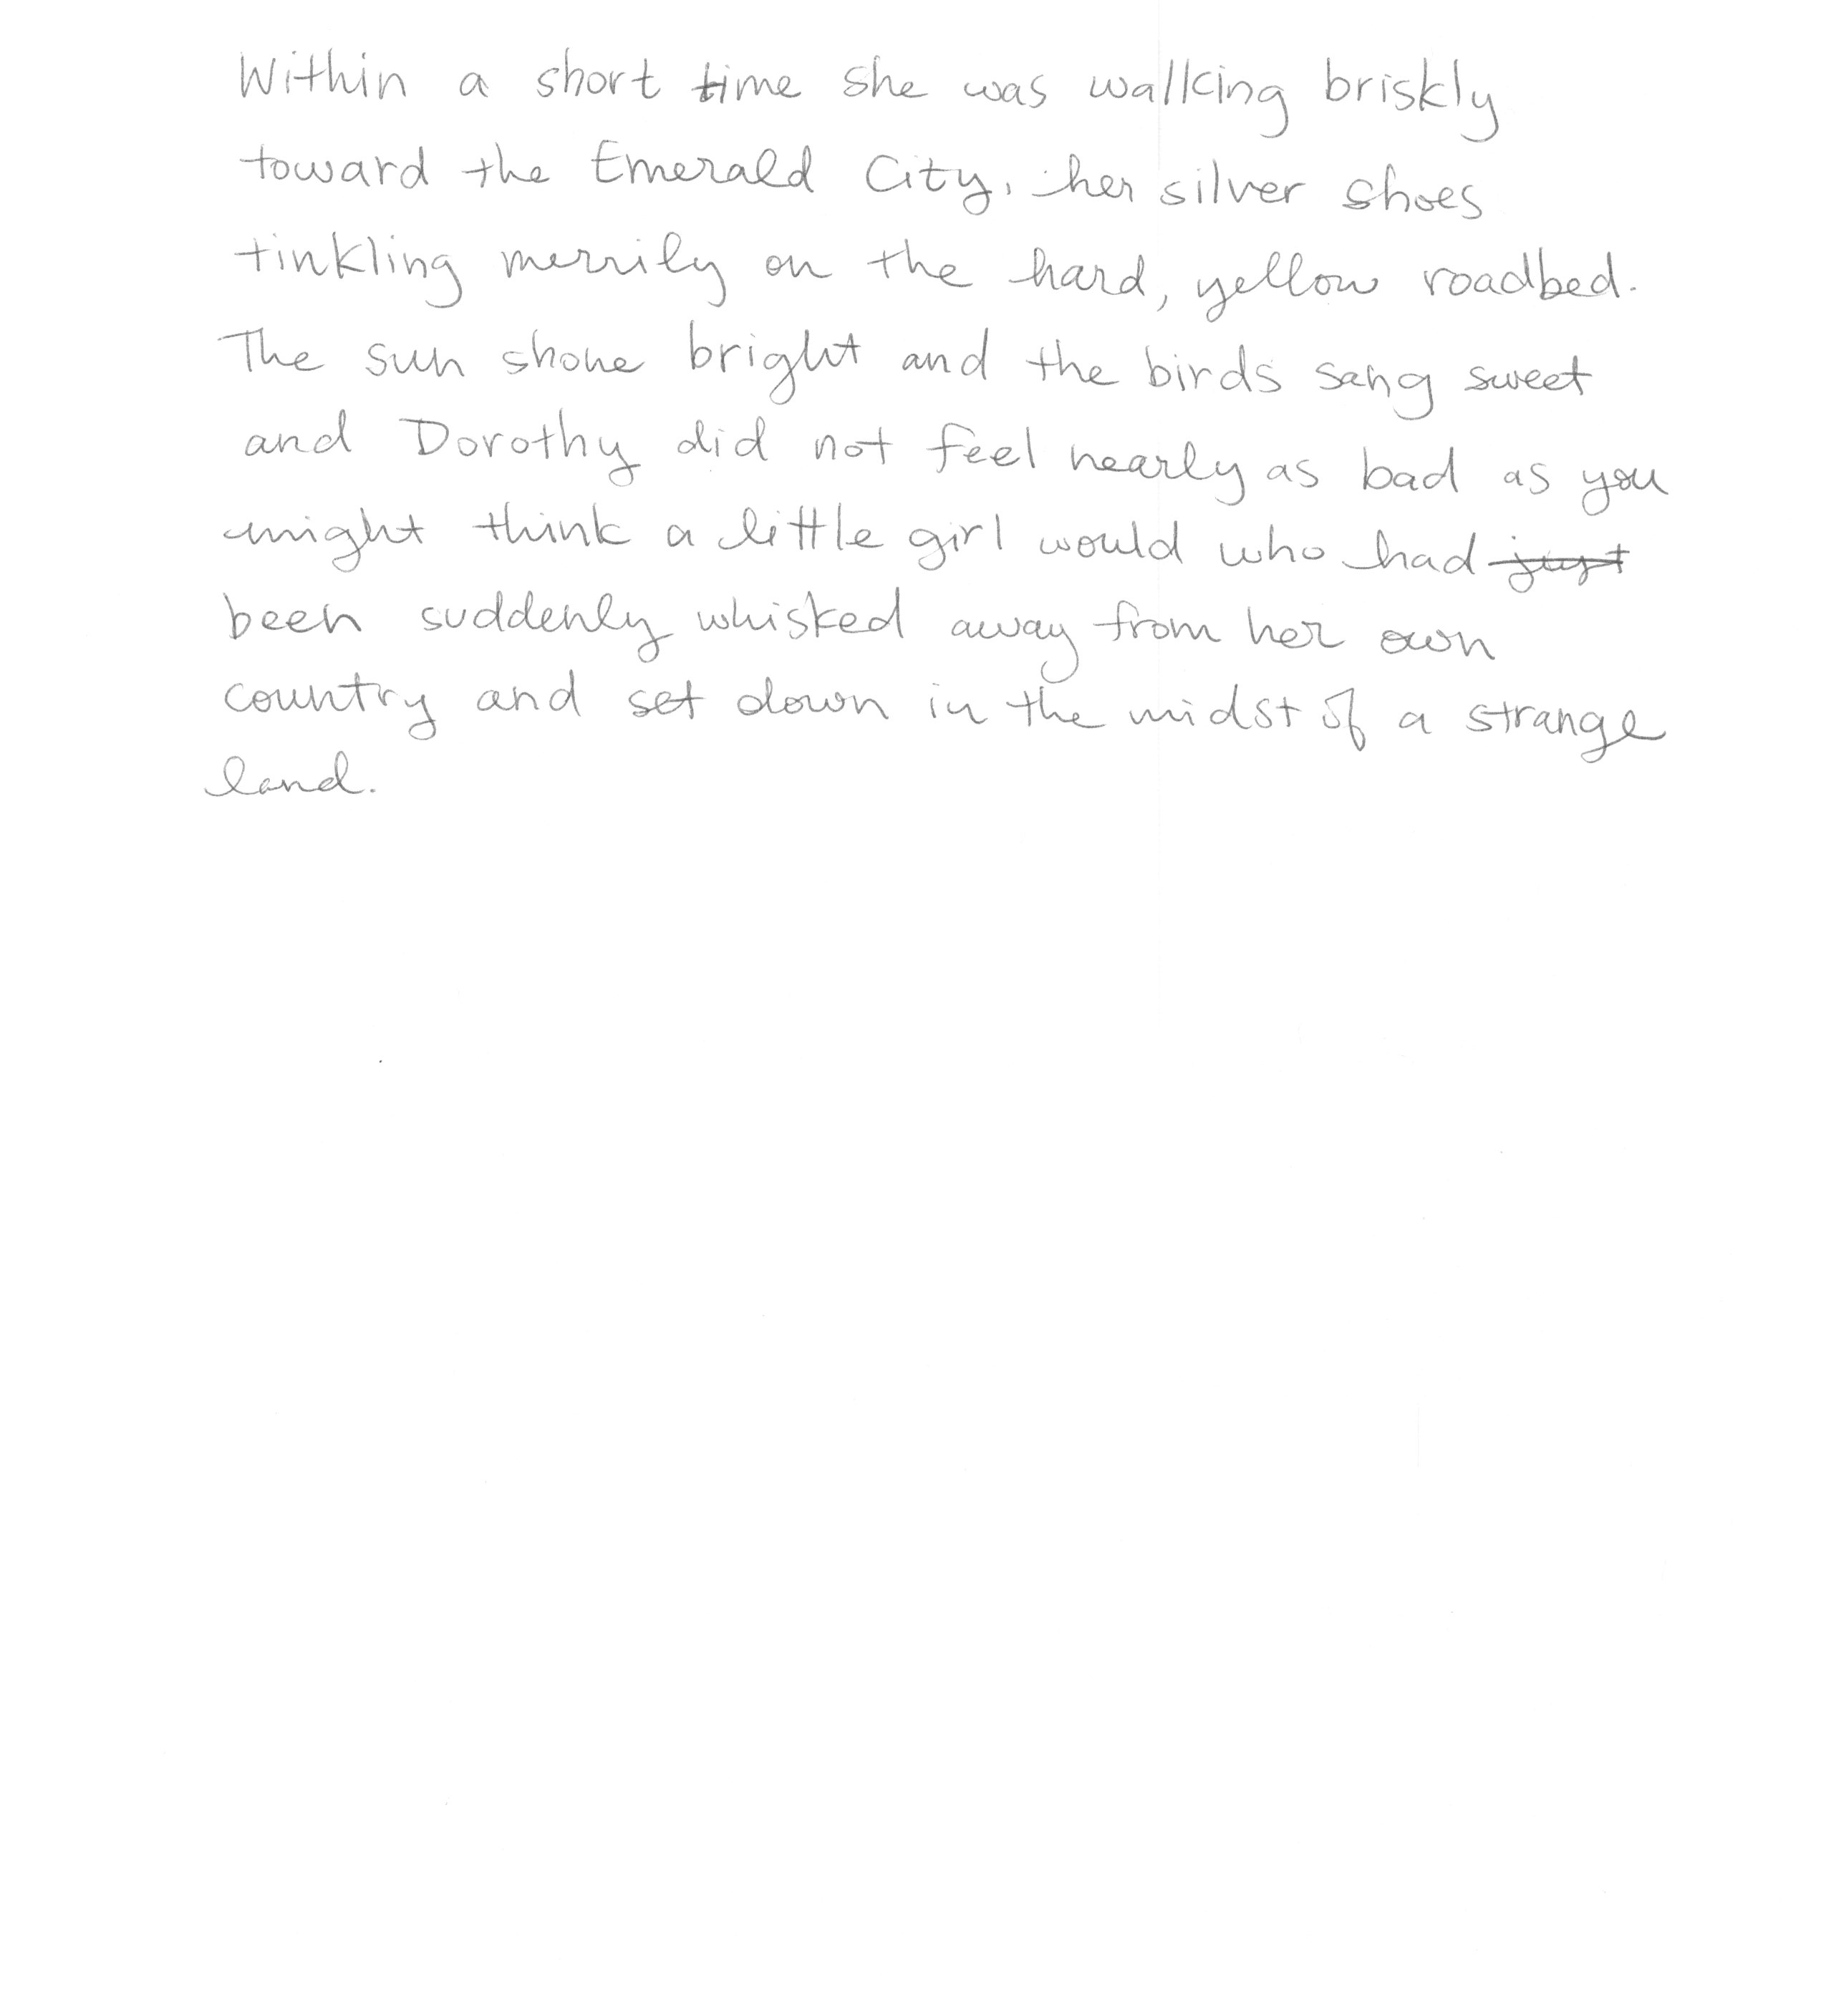 Within a short time she was walking briskly
toward the Emerald City, her silver shoes
tinkling merrily on the hard, yellow roadbed.
The sun shone bright and the birds sang sweet
and Dorothy did not feel nearly as bad as you
might think a little girl would who had ~~just~~
been suddenly whisked away from her own
country and set down in the midst of a strange
land.